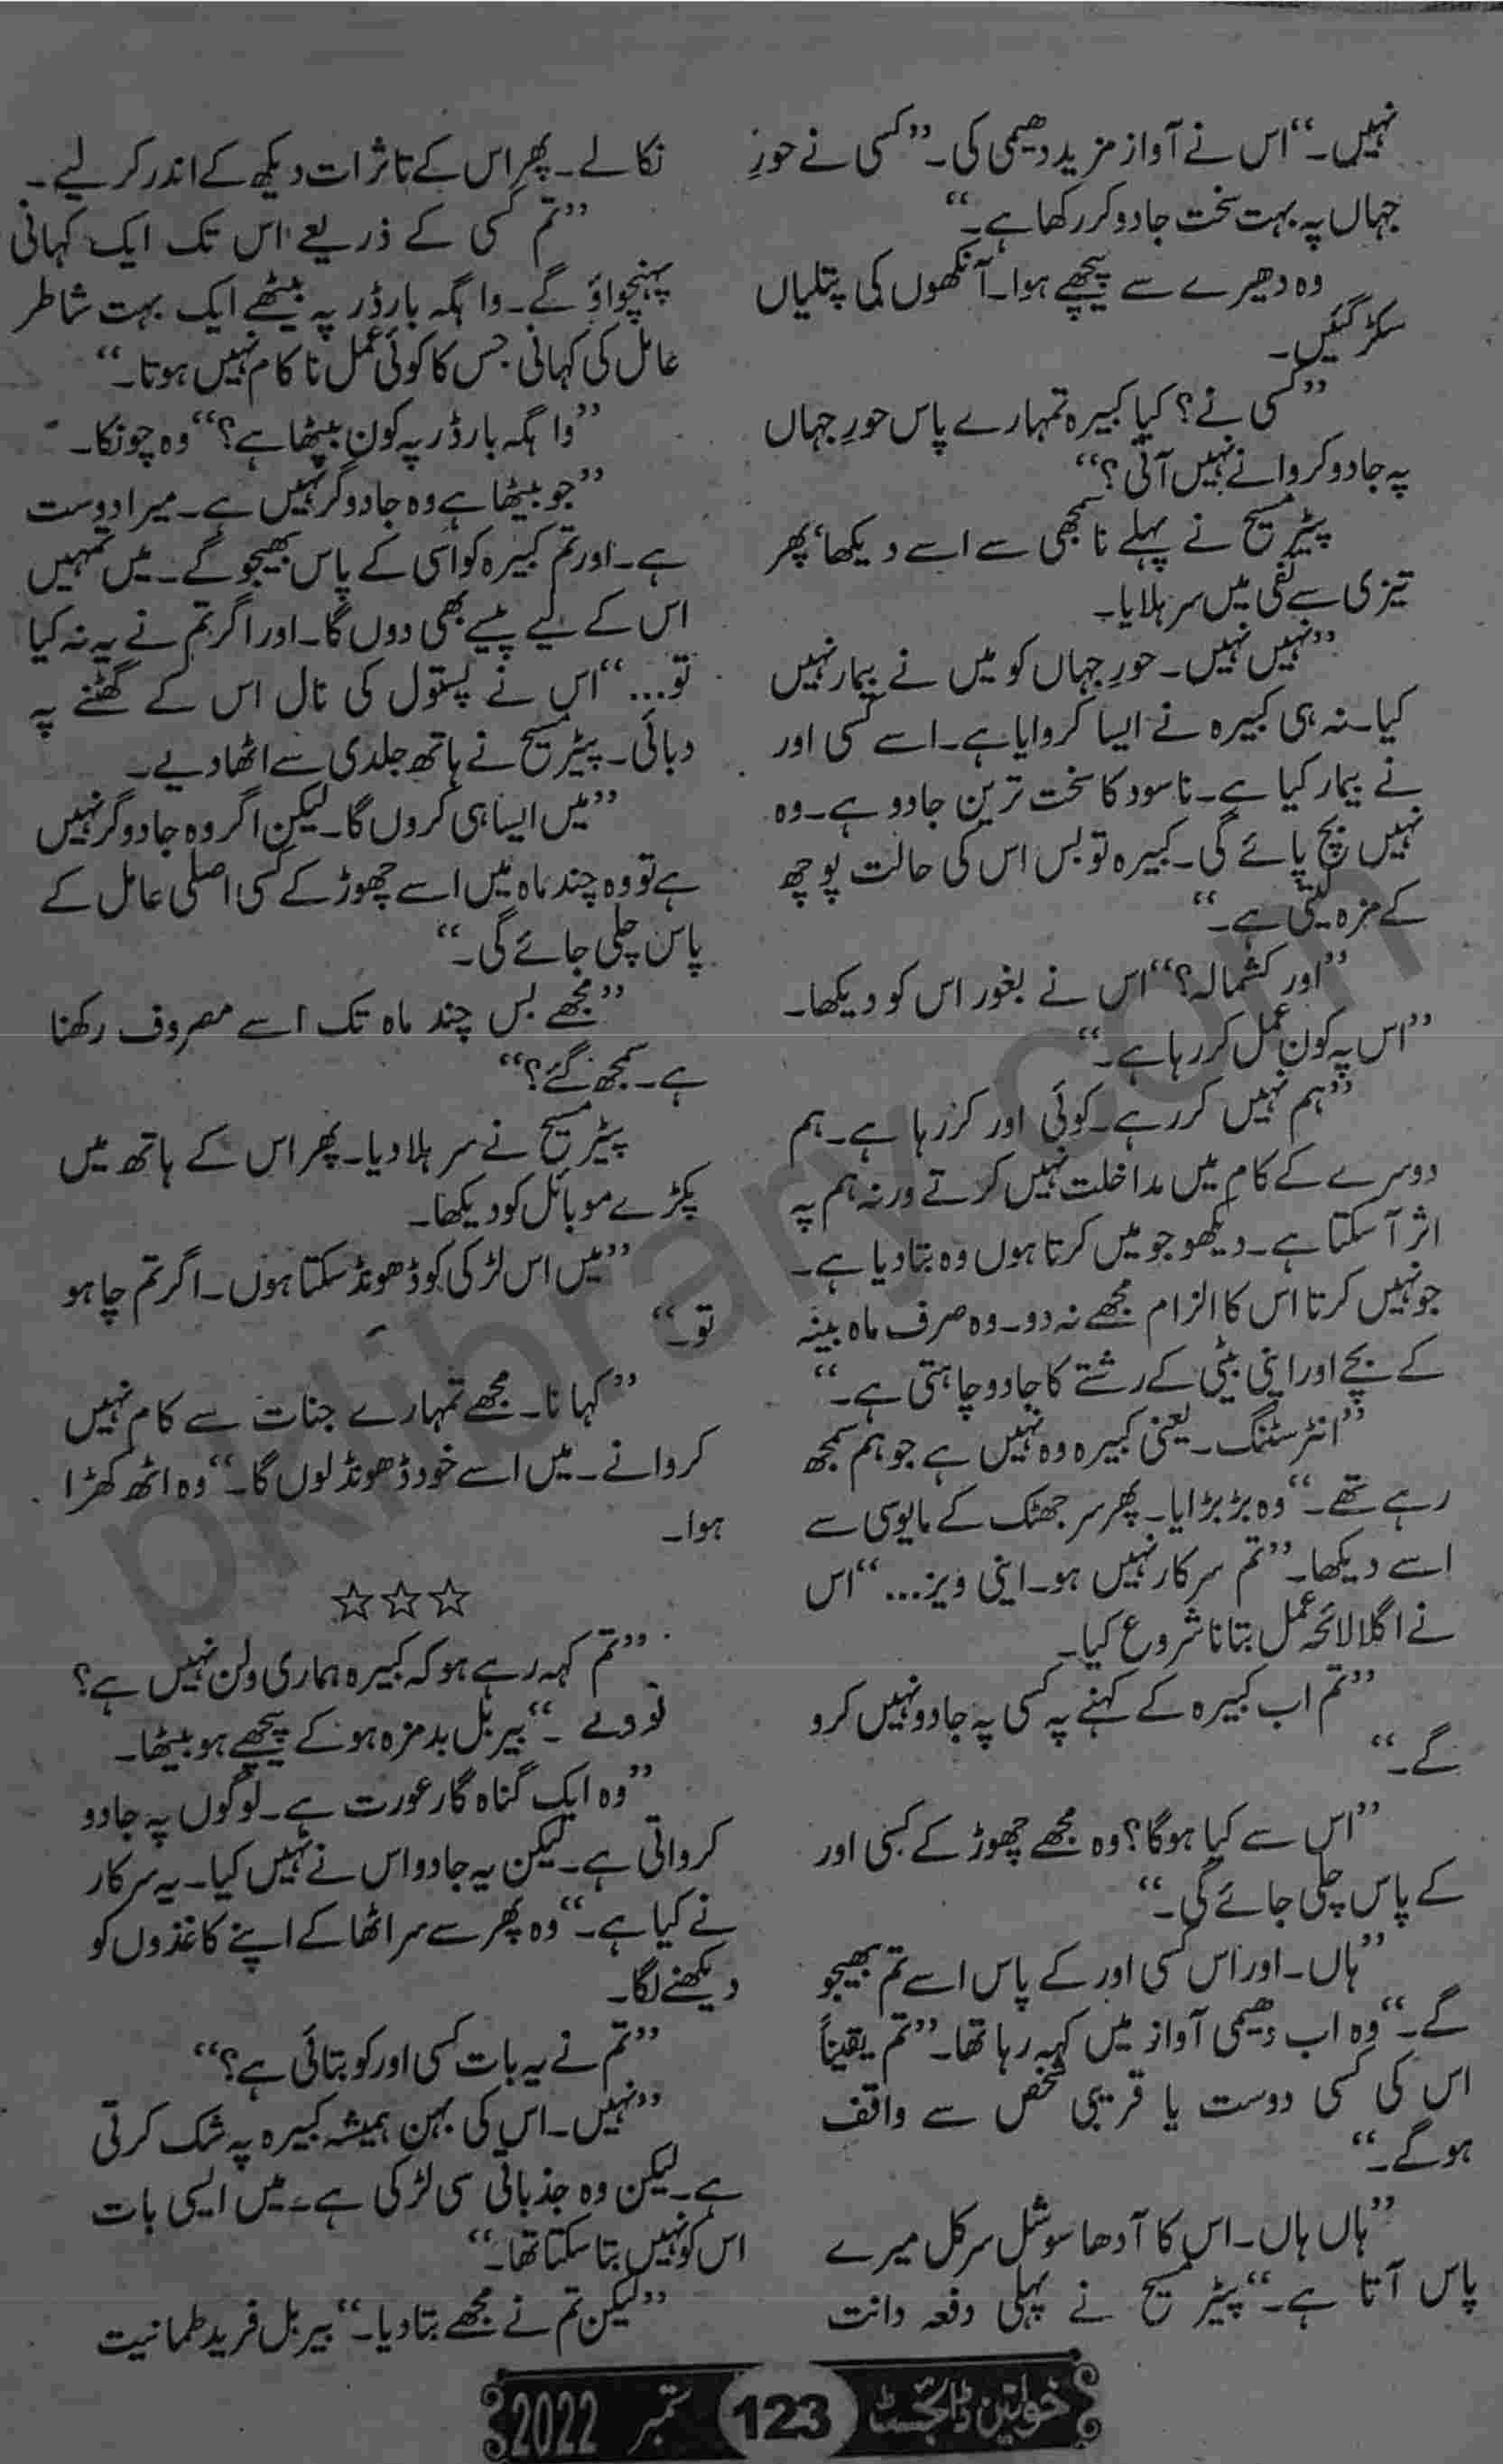 نہیں۔“ اس نے آواز مزید دھیمی کی۔ ”کسی نے حورِ
جہاں پہ بہت سخت جادو کر رکھا ہے۔“
وہ دھیرے سے پیچھے ہوا۔ آنکھوں کی پتلیاں
سکڑ گئیں۔
”کسی نے؟ کیا کبیرہ تمہارے پاس حورِ جہاں
پہ جادو کروانے نہیں آئی؟“
پیٹر مسیح نے پہلے ناسمجھی سے اسے دیکھا، پھر
تیزی سے نفی میں سر ہلایا۔
”نہیں نہیں۔ حورِ جہاں کو میں نے بیمار نہیں
کیا۔ نہ ہی کبیرہ نے ایسا کروایا ہے۔ اسے کسی اور
نے بیمار کیا ہے۔ ناسود کا سخت ترین جادو ہے۔ وہ
نہیں بچ پائے گی۔ کبیرہ تو بس اس کی حالت پوچھ
کے مزہ لیتی ہے۔“
”اور کشمالہ؟“ اس نے بغور اس کو دیکھا۔
”اس پہ کون عمل کر رہا ہے۔“
”ہم نہیں کر رہے۔ کوئی اور کر رہا ہے۔ ہم
دوسرے کے کام میں مداخلت نہیں کرتے ورنہ ہم پہ
اثر آ سکتا ہے۔ دیکھو جو میں کرتا ہوں وہ بتا دیا ہے۔
جو نہیں کرتا اس کا الزام مجھے نہ دو۔ وہ صرف ماہ بینہ
کے بچے اور اپنی بیٹی کے رشتے کا جادو چاہتی ہے۔“
”انٹرسٹنگ۔ یعنی کبیرہ وہ نہیں ہے جو ہم سمجھ
رہے تھے۔“ وہ بڑبڑایا۔ پھر سر جھٹک کے مایوسی سے
اسے دیکھا۔ ”تم سرکار نہیں ہو۔ اپنی ویز...“ اس
نے اگلا لائحہ عمل بتانا شروع کیا۔
”تم اب کبیرہ کے کہنے پہ کسی پہ جادو نہیں کرو
گے۔“
”اس سے کیا ہوگا؟ وہ مجھے چھوڑ کے کسی اور
کے پاس چلی جائے گی۔“
”ہاں۔ اور اس کسی اور کے پاس اسے تم بھیجو
گے۔“ وہ اب دھیمی آواز میں کہہ رہا تھا۔ ”تم یقیناً
اس کی کسی دوست یا قریبی شخص سے واقف
ہوگے۔“
”ہاں ہاں۔ اس کا آدھا سوشل سرکل میرے
پاس آتا ہے۔“ پیٹر مسیح نے پہلی دفعہ دانت
نکالے۔ پھر اس کے تاثرات دیکھ کے اندر کر لیے۔
”تم کسی کے ذریعے اس تک ایک کہانی
پہنچواؤ گے۔ واہگہ بارڈر پہ بیٹھے ایک بہت شاطر
عامل کی کہانی جس کا کوئی عمل ناکام نہیں ہوتا۔“
”واہگہ بارڈر پہ کون بیٹھا ہے؟“ وہ چونکا۔
”جو بیٹھا ہے وہ جادوگر نہیں ہے۔ میرا دوست
ہے۔ اور تم کبیرہ کو اسی کے پاس بھیجو گے۔ میں تمہیں
اس کے لیے پیسے بھی دوں گا۔ اور اگر تم نے یہ نہ کیا
تو...“ اس نے پستول کی نال اس کے گھٹنے پہ
دبائی۔ پیٹر مسیح نے ہاتھ جلدی سے اٹھا دیے۔
”میں ایسا ہی کروں گا۔ لیکن اگر وہ جادوگر نہیں
ہے تو وہ چند ماہ میں اسے چھوڑ کے کسی اصلی عامل کے
پاس چلی جائے گی۔“
”مجھے بس چند ماہ تک اسے مصروف رکھنا
ہے۔ سمجھ گئے؟“
پیٹر مسیح نے سر ہلا دیا۔ پھر اس کے ہاتھ میں
پکڑے موبائل کو دیکھا۔
”میں اس لڑکی کو ڈھونڈ سکتا ہوں۔ اگر تم چاہو
تو۔“
”کہا نا۔ مجھے تمہارے جنات سے کام نہیں
کروانے۔ میں اسے خود ڈھونڈ لوں گا۔“ وہ اٹھ کھڑا
ہوا۔
☆☆☆
”تم کہہ رہے ہو کہ کبیرہ ہماری ولن نہیں ہے؟
نو وے۔“ بیربل بدمزہ ہو کے پیچھے ہو بیٹھا۔
”وہ ایک گناہ گار عورت ہے۔ لوگوں پہ جادو
کرواتی ہے۔ لیکن یہ جادو اس نے نہیں کیا۔ یہ سرکار
نے کیا ہے۔“ وہ پھر سے سر اٹھا کے اپنے کاغذوں کو
دیکھنے لگا۔
”تم نے یہ بات کسی اور کو بتائی ہے؟“
”نہیں۔ اس کی بہن ہمیشہ کبیرہ پہ شک کرتی
ہے۔ لیکن وہ جذباتی سی لڑکی ہے۔ میں ایسی بات
اس کو نہیں بتا سکتا تھا۔“
”لیکن تم نے مجھے بتا دیا۔“ بیربل فرید طمانیت
خواتین ڈائجسٹ 123 ستمبر 2022
pklibrary.com